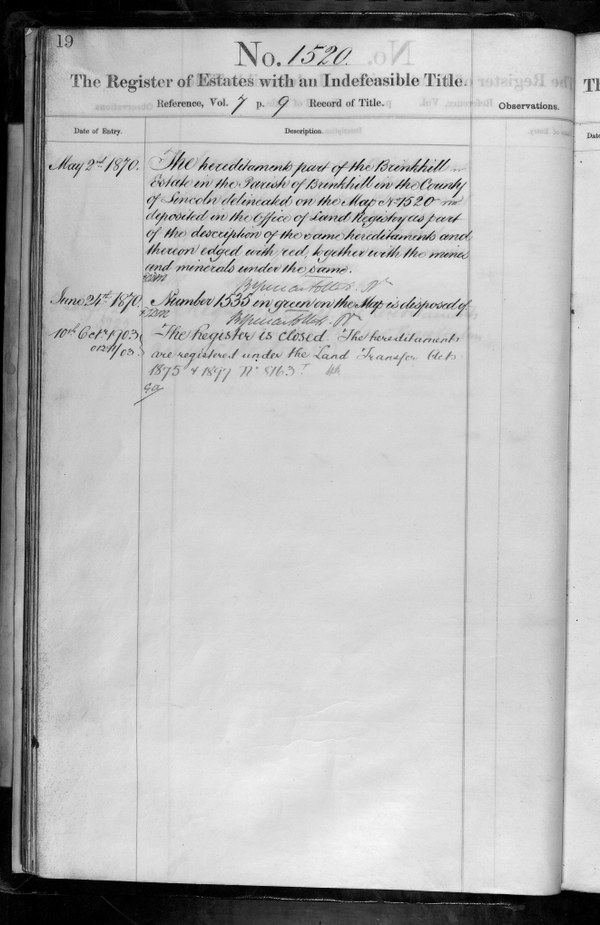 19
No. 1520.
The Register of Estates with an Indefeasible Title.
Reference, Vol. 7 p. 9 Record of Title.
Observations.
Date of Entry.
Description.
May 2nd 1870.
The hereditaments part of the Brinkhill
Estate in the Parish of Brinkhill in the County
of Lincoln delineated on the Map No 1520
deposited in the Office of Land Registry as part
of the description of the same hereditaments and
thereon edged with red, together with the mines
and minerals under the same.
June 24th 1870.
Number 1535 in green on the Map is disposed of
10th Octr 1903
The Register is closed. The hereditaments
are registered under the Land Transfer Acts
1875 & 1897 No